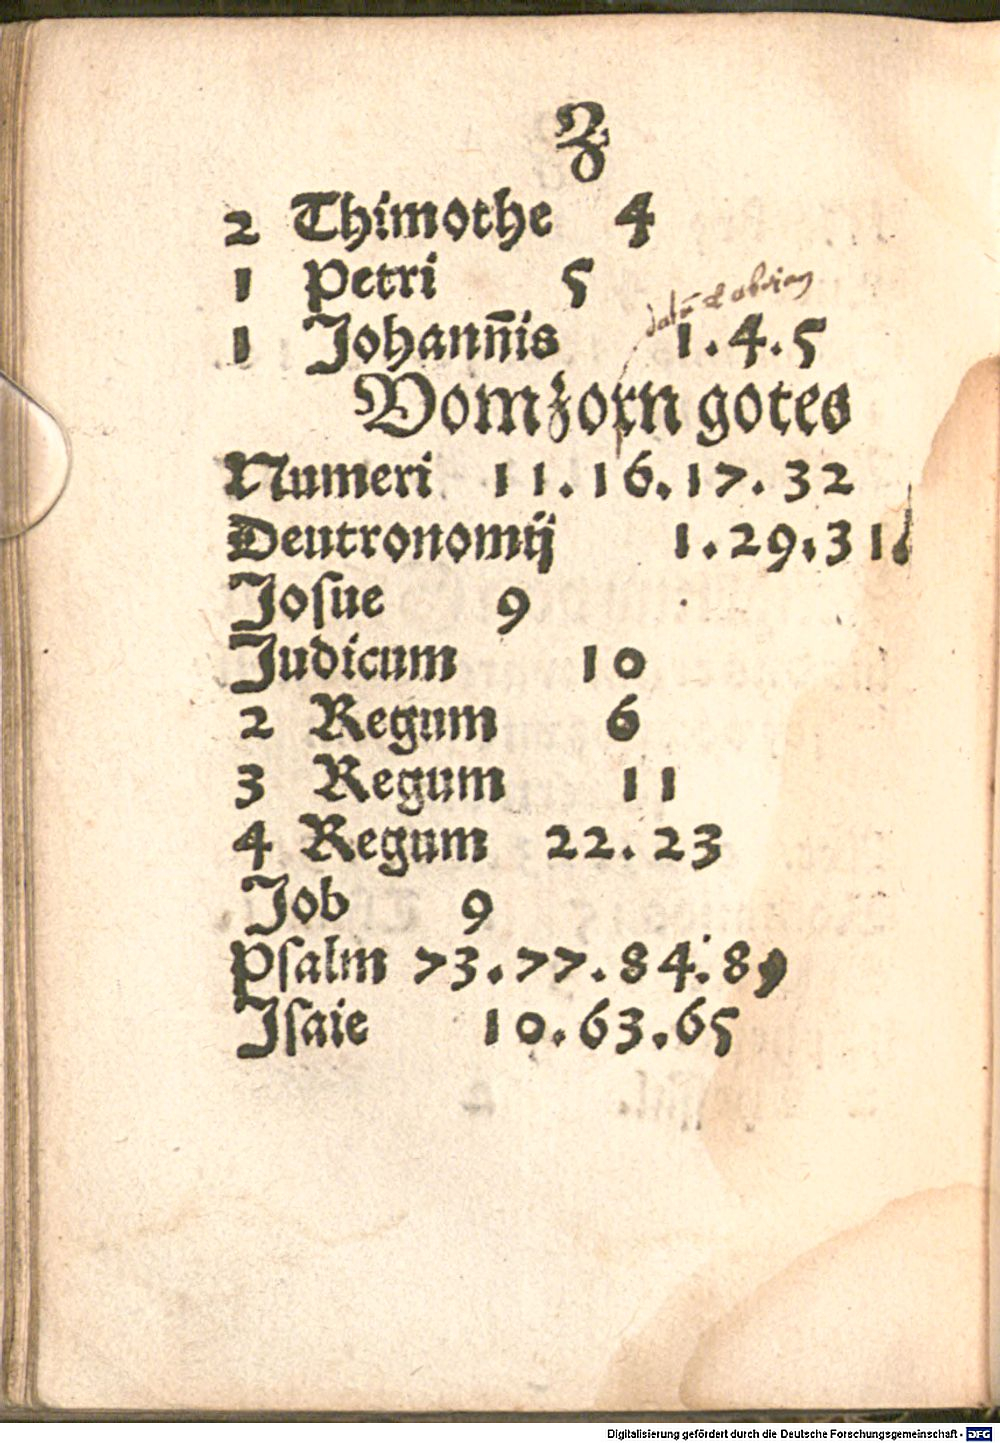 Z
2 Thimothe 4
1 Petri 5
1 Johann̄is 1.4.5
Vom zorn gotes
Numeri 11.16.17.32
Deutronomij 1.29.31
Josue 9
Judicum 10
2 Regum 6
3 Regum 11
4 Regum 22.23
Job 9
Psalm 73.77.84.89
Isaie 10.63.65
Digitalisierung gefördert durch die Deutsche Forschungsgemeinschaft - DFG